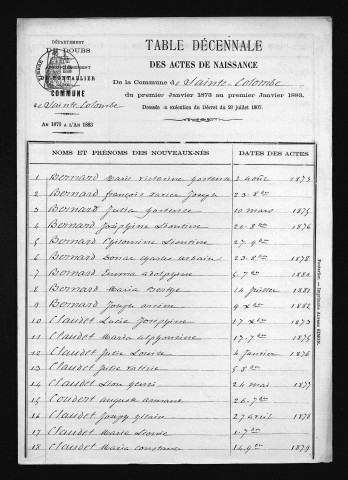 DÉPARTEMENT
DU DOUBS
TABLE DÉCENNALE
DES ACTES DE NAISSANCE
ARRONDISSEMENT
DE PONTARLIER
De la Commune de Sainte-Colombe
COMMUNE
du premier Janvier 1873 au premier Janvier 1883.
de Sainte-Colombe
Dressée en exécution du Décret du 20 juillet 1807.
AN 1873 A L'AN 1883
NOMS ET PRÉNOMS DES NOUVEAUX-NÉS DATES DES ACTES
1 Bernard Marie Victorine 2 août 1873
2 Bernard françois xavier Joseph 23. 8bre
3 Bernard Julia hortense 10 mars 1875
4 Bernard Joséphine Léontine 20. 8bre 1876
5 Bernard Philomène Léontine 27. 9bre
6 Bernard Charles urbain 23. 8bre 1878
7 Bernard Emma adolphine 5. 7bre 1880
8 Bernard Maria Berthe 14 Juillet 1881
9 Bernard Joseph 9 xbre 1882
10 Claudet Lucie Joséphine 17 xbre 1873
11 Claudet Maria alphonsine 17. 7bre 1875
12 Claudet Julie Louise 4 Janvier 1876
13 Claudet Julie 5 8bre
14 Claudet Léon henri 24 mai 1877
15 Coudert auguste armand 26. 7bre
16 Claudet Joseph 27 avril 1878
17 Claudet Marie Léonie 1. 7bre
18 Claudet Maria constance 14. 9bre 1879
Pontarlier. — Imprimerie